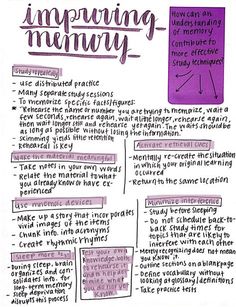 improving
memory
How can an
understanding
of memory
contribute to
more effective
study techniques?
Study repeatedly
- use distributed practice
- Many separate study sessions
- To memorize specific facts/figures:
"Rehearse the name or number you are trying to memorize, wait a
few seconds, rehearse again, wait a little longer, rehearse again,
then wait longer still and rehearse yet again. The waits should be
as long as possible without losing the information."
- Skimming yields little retention
- Rehearsal is key
Make the material meaningful
- Take notes in your own words
- Relate the material to what
you already know or have ex-
perienced
Activate retrieval cues
- Mentally re-create the situation
in which your original learning
occurred
- Return to the same location
Use mnemonic devices
- Make up a story that incorporates
vivid images of the items
- Chunk info into acronyms
- Create rhythmic rhymes
Minimize interference
- Study before sleeping
- Do not schedule back-to-
back study times for
topics that are likely to
interfere with each other
Sleep more
- During sleep, brain
organizes and con-
solidates info. for
long-term memory
- Sleep deprivation
disrupts this process
Test your own
knowledge, both
to rehearse it
and to help
determine what
you do not
yet know
- Mentally recognizing does not mean
you know it
- Outline sections on a blank page
- Define vocabulary without
looking at glossary/definitions
- Take practice tests